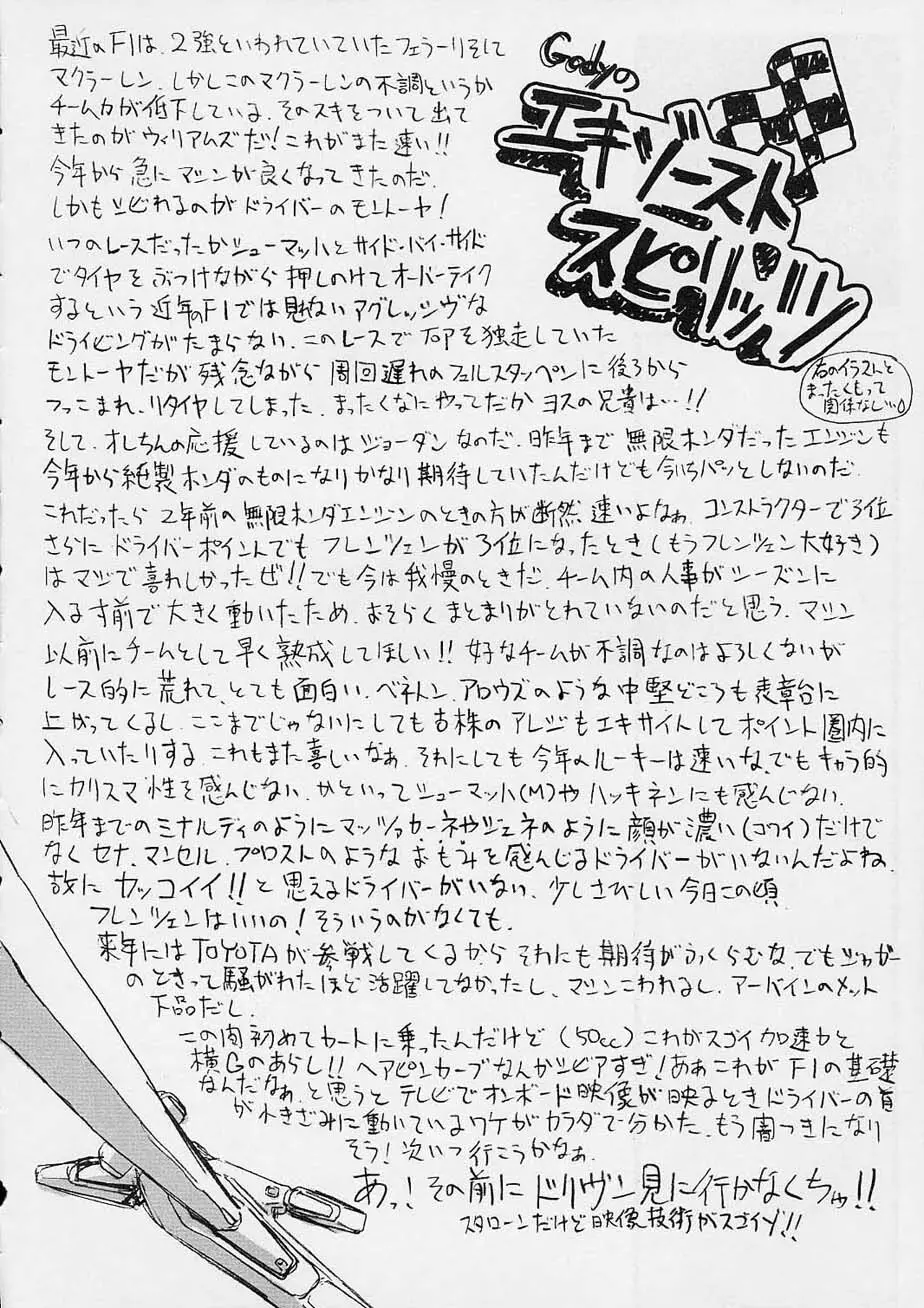 Godyの
エキゾースト
スピリッツ
右のイラストと
まったくもって
関係なし…。
最近のF1は、2強といわれていていたフェラーリそして
マクラーレン、しかしこのマクラーレンの不調というか
チーム力が低下している、そのスキをついて出て
きたのがウィリアムズだ!これがまた速い!!
今年から急にマシンが良くなってきたのだ、
しかもシビれるのがドライバーのモントーヤ!
いつのレースだったかシューマッハとサイド・バイ・サイド
でタイヤをぶつけながら押しのけてオーバーテイク
するという近年のF1では見ないアグレッシヴな
ドライビングがたまらない、このレースでTOPを独走していた
モントーヤだが残念ながら周回遅れのフェルスタッペンに後ろから
つっこまれ、リタイヤしてしまった、まったくなにやってだかヨスの兄貴は…!!
そして、オレちんの応援しているのはジョーダンなのだ、昨年まで無限ホンダだったエンジンも
今年から純製ホンダのものになりかなり期待していたんだけども今いちパッとしないのだ、
これだったら2年前の無限ホンダエンジンのときの方が断然速いよなぁ、コンストラクターで3位
さらにドライバーポイントでもフレンツェンが3位になったとき(もうフレンツェン大好き)
はマジで喜れしかったぜ!!でも今は我慢のときだ、チーム内の人事がシーズンに
入るす前で大きく動いたため、おそらくまとまりがとれていないのだと思う、マシン
以前にチームとして早く熟成してほしい!!好なチームが不調なのはよろしくないが
レース的に荒れて、とても面白い、ベネトン、アロウズのような中堅どころも表章台に
上がってくるし、ここまでじゃないにしても古株のアレジもエキサイトしてポイント圏内に
入っていたりする、これもまた喜しいなぁ、それにしても今年のルーキーは速いな、でもキャラ的
にカリスマ性を感んじない、かといってシューマッハ(M)やハッキネンにも感んじない、
昨年までのミナルディのようにマッツァカーネやジェネのように顔が濃い(コワイ)だけで
なくセナ、マンセル、プロストのようなおもみを感んじるドライバーがいないんだよね、
故にカッコイイ!!と思えるドライバーがいない、少しさびしい今日この頃
フレンツェンはいいの!そういうのがなくても、
来年にはTOYOTAが参戦してくるからそれにも期待がふくらむな、でもジャガー
のときって騒がわたほど活躍してなかったし、マシンこわれるし、アーバインのメット
下品だし、
この間初めてカートに乗ったんだけど(50cc)これがスゴイ加速力と
横Gのあらし!!ヘアピンカーブなんかシビアすぎ!あぁこれがF1の基礎
なんだなぁ、と思うとテレビでオンボード映像が映るときドライバーの首
が小きざみに動いているワケがカラダで分かた、もう闇つきになり
そう!次いつ行こうかなぁ、
あっ!その前にドリヴン見に行かなくちゃ!!
スタローンだけど映像技術がスゴイゾ!!